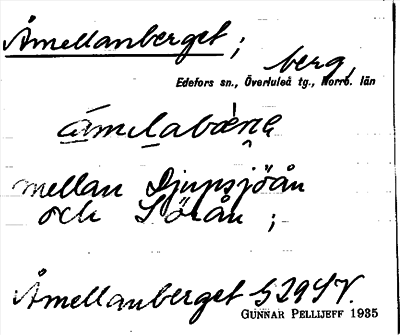 Åmellanberget;
berg,
Edefors sn., Överluleå tg., Norrb. län
mellan Djupsjöån
och Sörån;
Åmellanberget
GUNNAR PELLIJEFF 1935